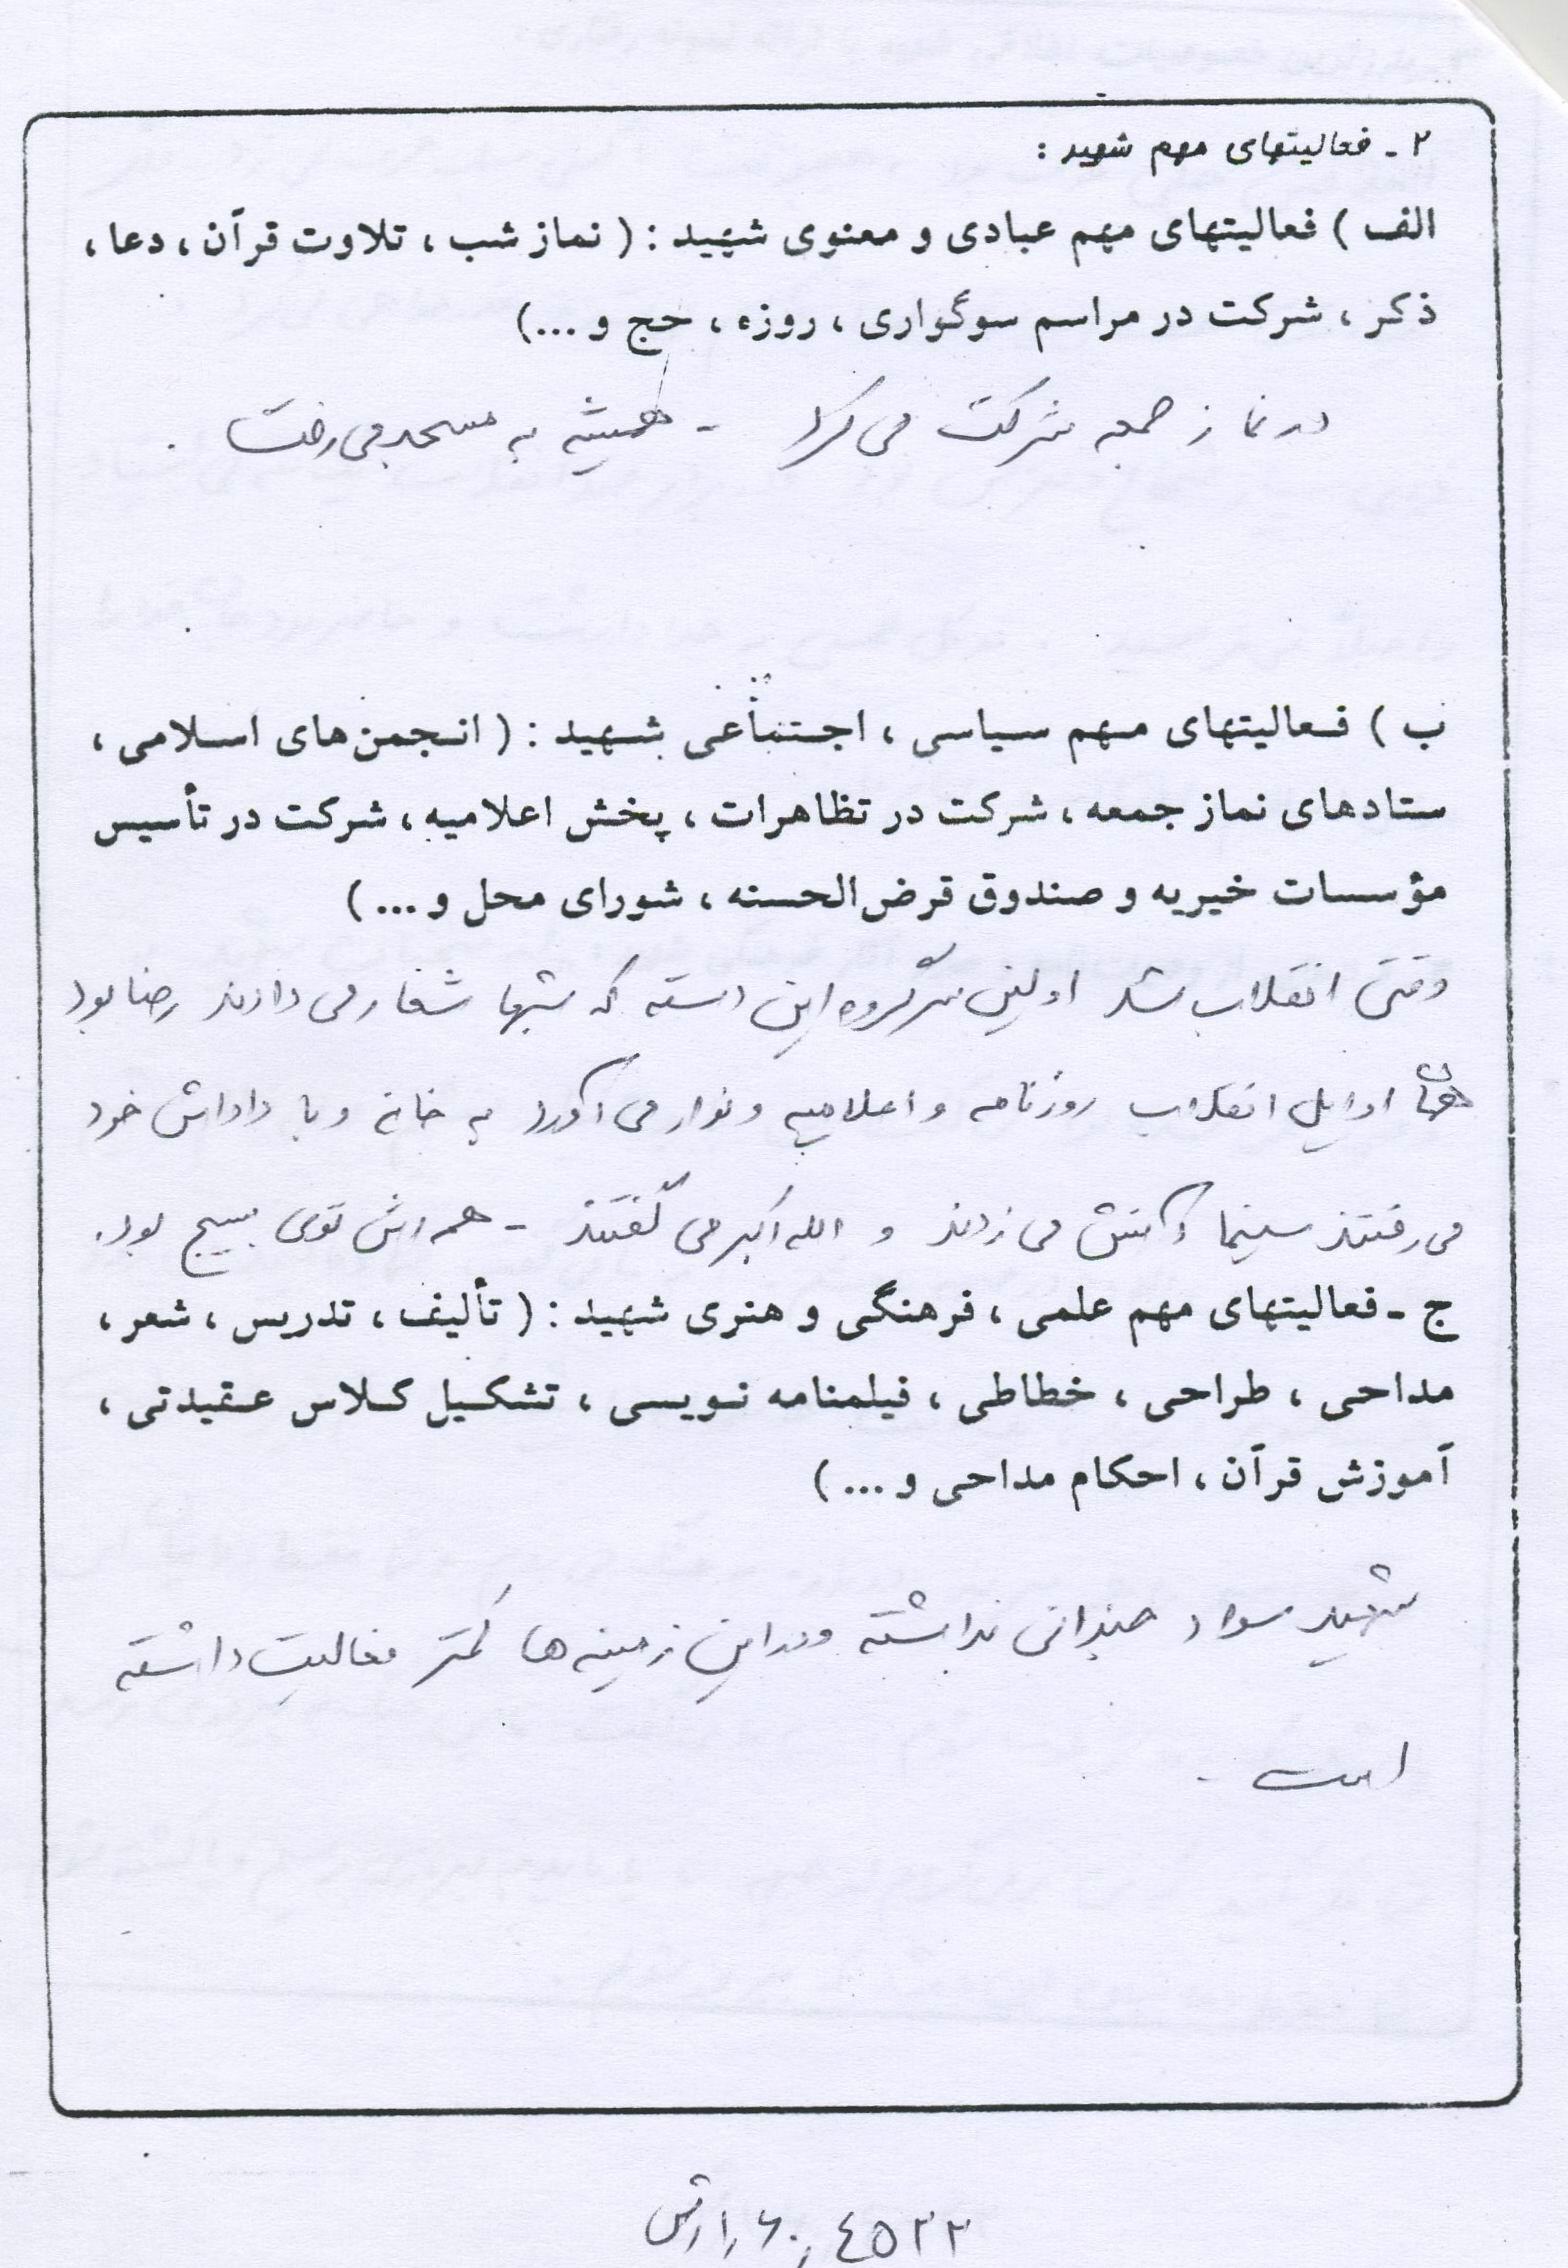 ۲ ـ فعالیتهای مهم شهید :
الف ) فعالیتهای مهم عبادی و معنوی شهید : ( نماز شب ، تلاوت قرآن ، دعا ،
ذکر ، شرکت در مراسم سوگواری ، روزه ، حج و ...)
در نماز جمعه شرکت می کرد - همیشه به مسجد می رفت .
ب ) فعالیتهای مهم سیاسی ، اجتماعی شهید : ( انجمن‌های اسلامی ،
ستادهای نماز جمعه ، شرکت در تظاهرات ، پخش اعلامیه ، شرکت در تأسیس
مؤسسات خیریه و صندوق قرض‌الحسنه ، شورای محل و ... )
وقتی انقلاب شد اولین سرگروه این دسته که شبها شعار می دادند رضا بود
اوایل انقلاب روزنامه و اعلامیه و نوار می آورد به خانه و با داداش خود
می رفتند سینما آتش می زدند و الله اکبر می گفتند - همه اش توی بسیج بود.
ج ـ فعالیتهای مهم علمی ، فرهنگی و هنری شهید : ( تألیف ، تدریس ، شعر ،
مداحی ، طراحی ، خطاطی ، فیلمنامه نویسی ، تشکیل کلاس عقیدتی ،
آموزش قرآن ، احکام مداحی و ... )
شهید سواد چندانی نداشته و در این زمینه ها کمتر فعالیت داشته
است .
۴۵۲۲ ر ۶۰ ر ارتش